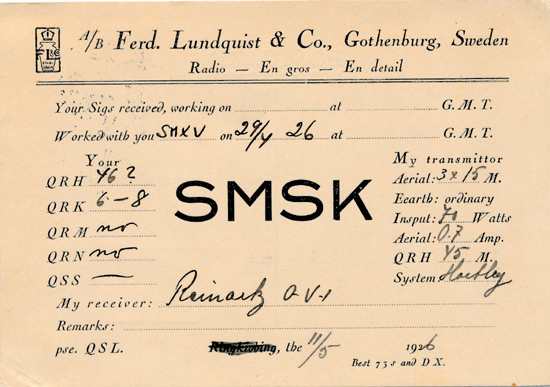 A/B Ferd. Lundquist & Co., Gothenburg, Sweden
Radio — En gros — En detail
Your Sigs received, working on at G. M. T.
Worked with you SMXV on 29/4 26 at G. M. T.
Your
QRH 46?
QRK 6-8
QRM no
QRN no
QSS —
SMSK
My transmittor
Aerial: 3 x 15 M.
Eearth: ordinary
Insput: 70 Watts
Aerial: 0.7 Amp.
QRH 45 M.
System Hartley
My receiver: Reinartz 0-V-1
Remarks:
pse. QSL. Ringkiøbing, the 11/5 1926
Best 73s and DX.